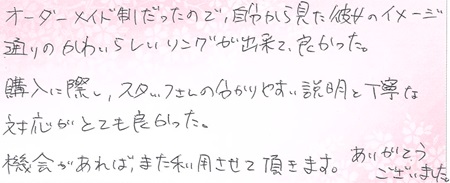 オーダーメイド制だったので、自分から見た彼女のイメージ
通りのかわいらしいリングが出来て、良かった。
購入に際し、スタッフさんの分かりやすい説明と丁寧な
対応がとても良かった。
機会があれば、また利用させて頂きます。 ありがとう
ございました。